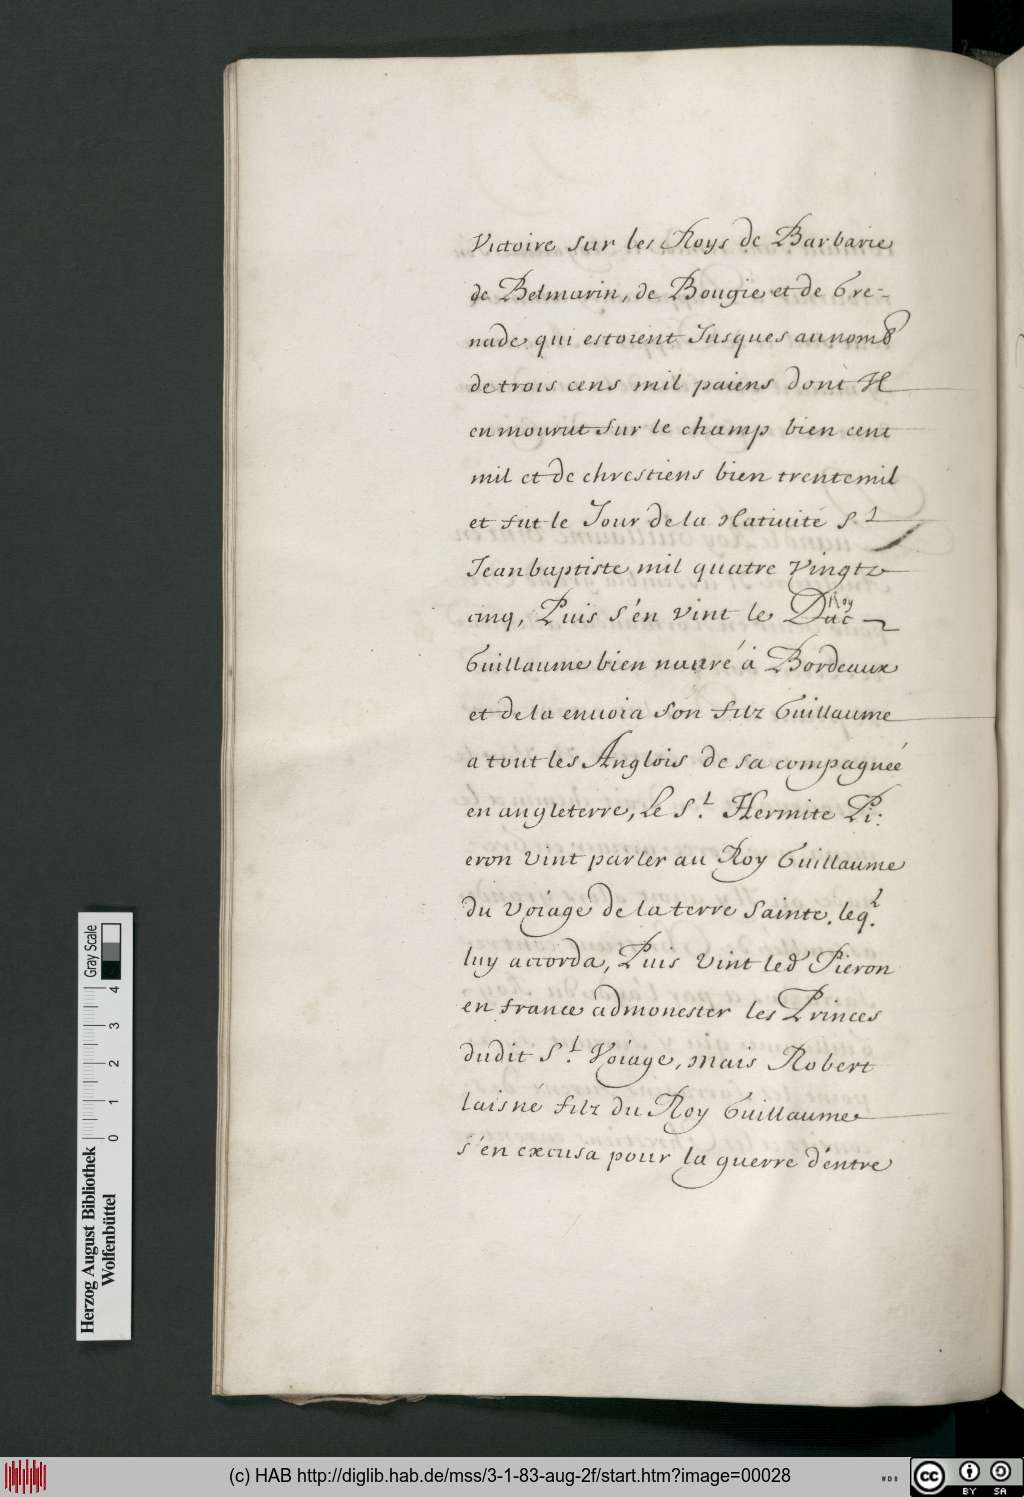 Victoire sur les Roys de Barbarie
de Belmarin, de Bougie et de Gre-
nade qui estoient Jusques au nomb
de trois cens mil paiens dont Il
en mourut sur le champ bien cent
mil et de chrestiens bien trente mil
et fut le Jour de la Natiuité St
Jean baptiste mil quatre vingtz
cinq, Puis s'én vint le Duc Roy
Guillaume bien nauré à Bordeaux
et de la enuoia son filz Guillaume
a tout les Anglois de sa compagnéé
en angleterre, Le St. Hermite Pi:
eron vint parler au Roy Guillaume
du voiage de la terre sainte. leql.
luy accorda, Puis vint led Pieron
en france admonester les Princes
dudit St. Voiage, mais Robert
laisné filz du Roy Guillaume
s'én excusa pour la guerre d'éntre
Herzog August Bibliothek
Wolfenbüttel
0 1 2 3 4
Gray Scale
(c) HAB http://diglib.hab.de/mss/3-1-83-aug-2f/start.htm?image=00028
WDB
cc BY SA